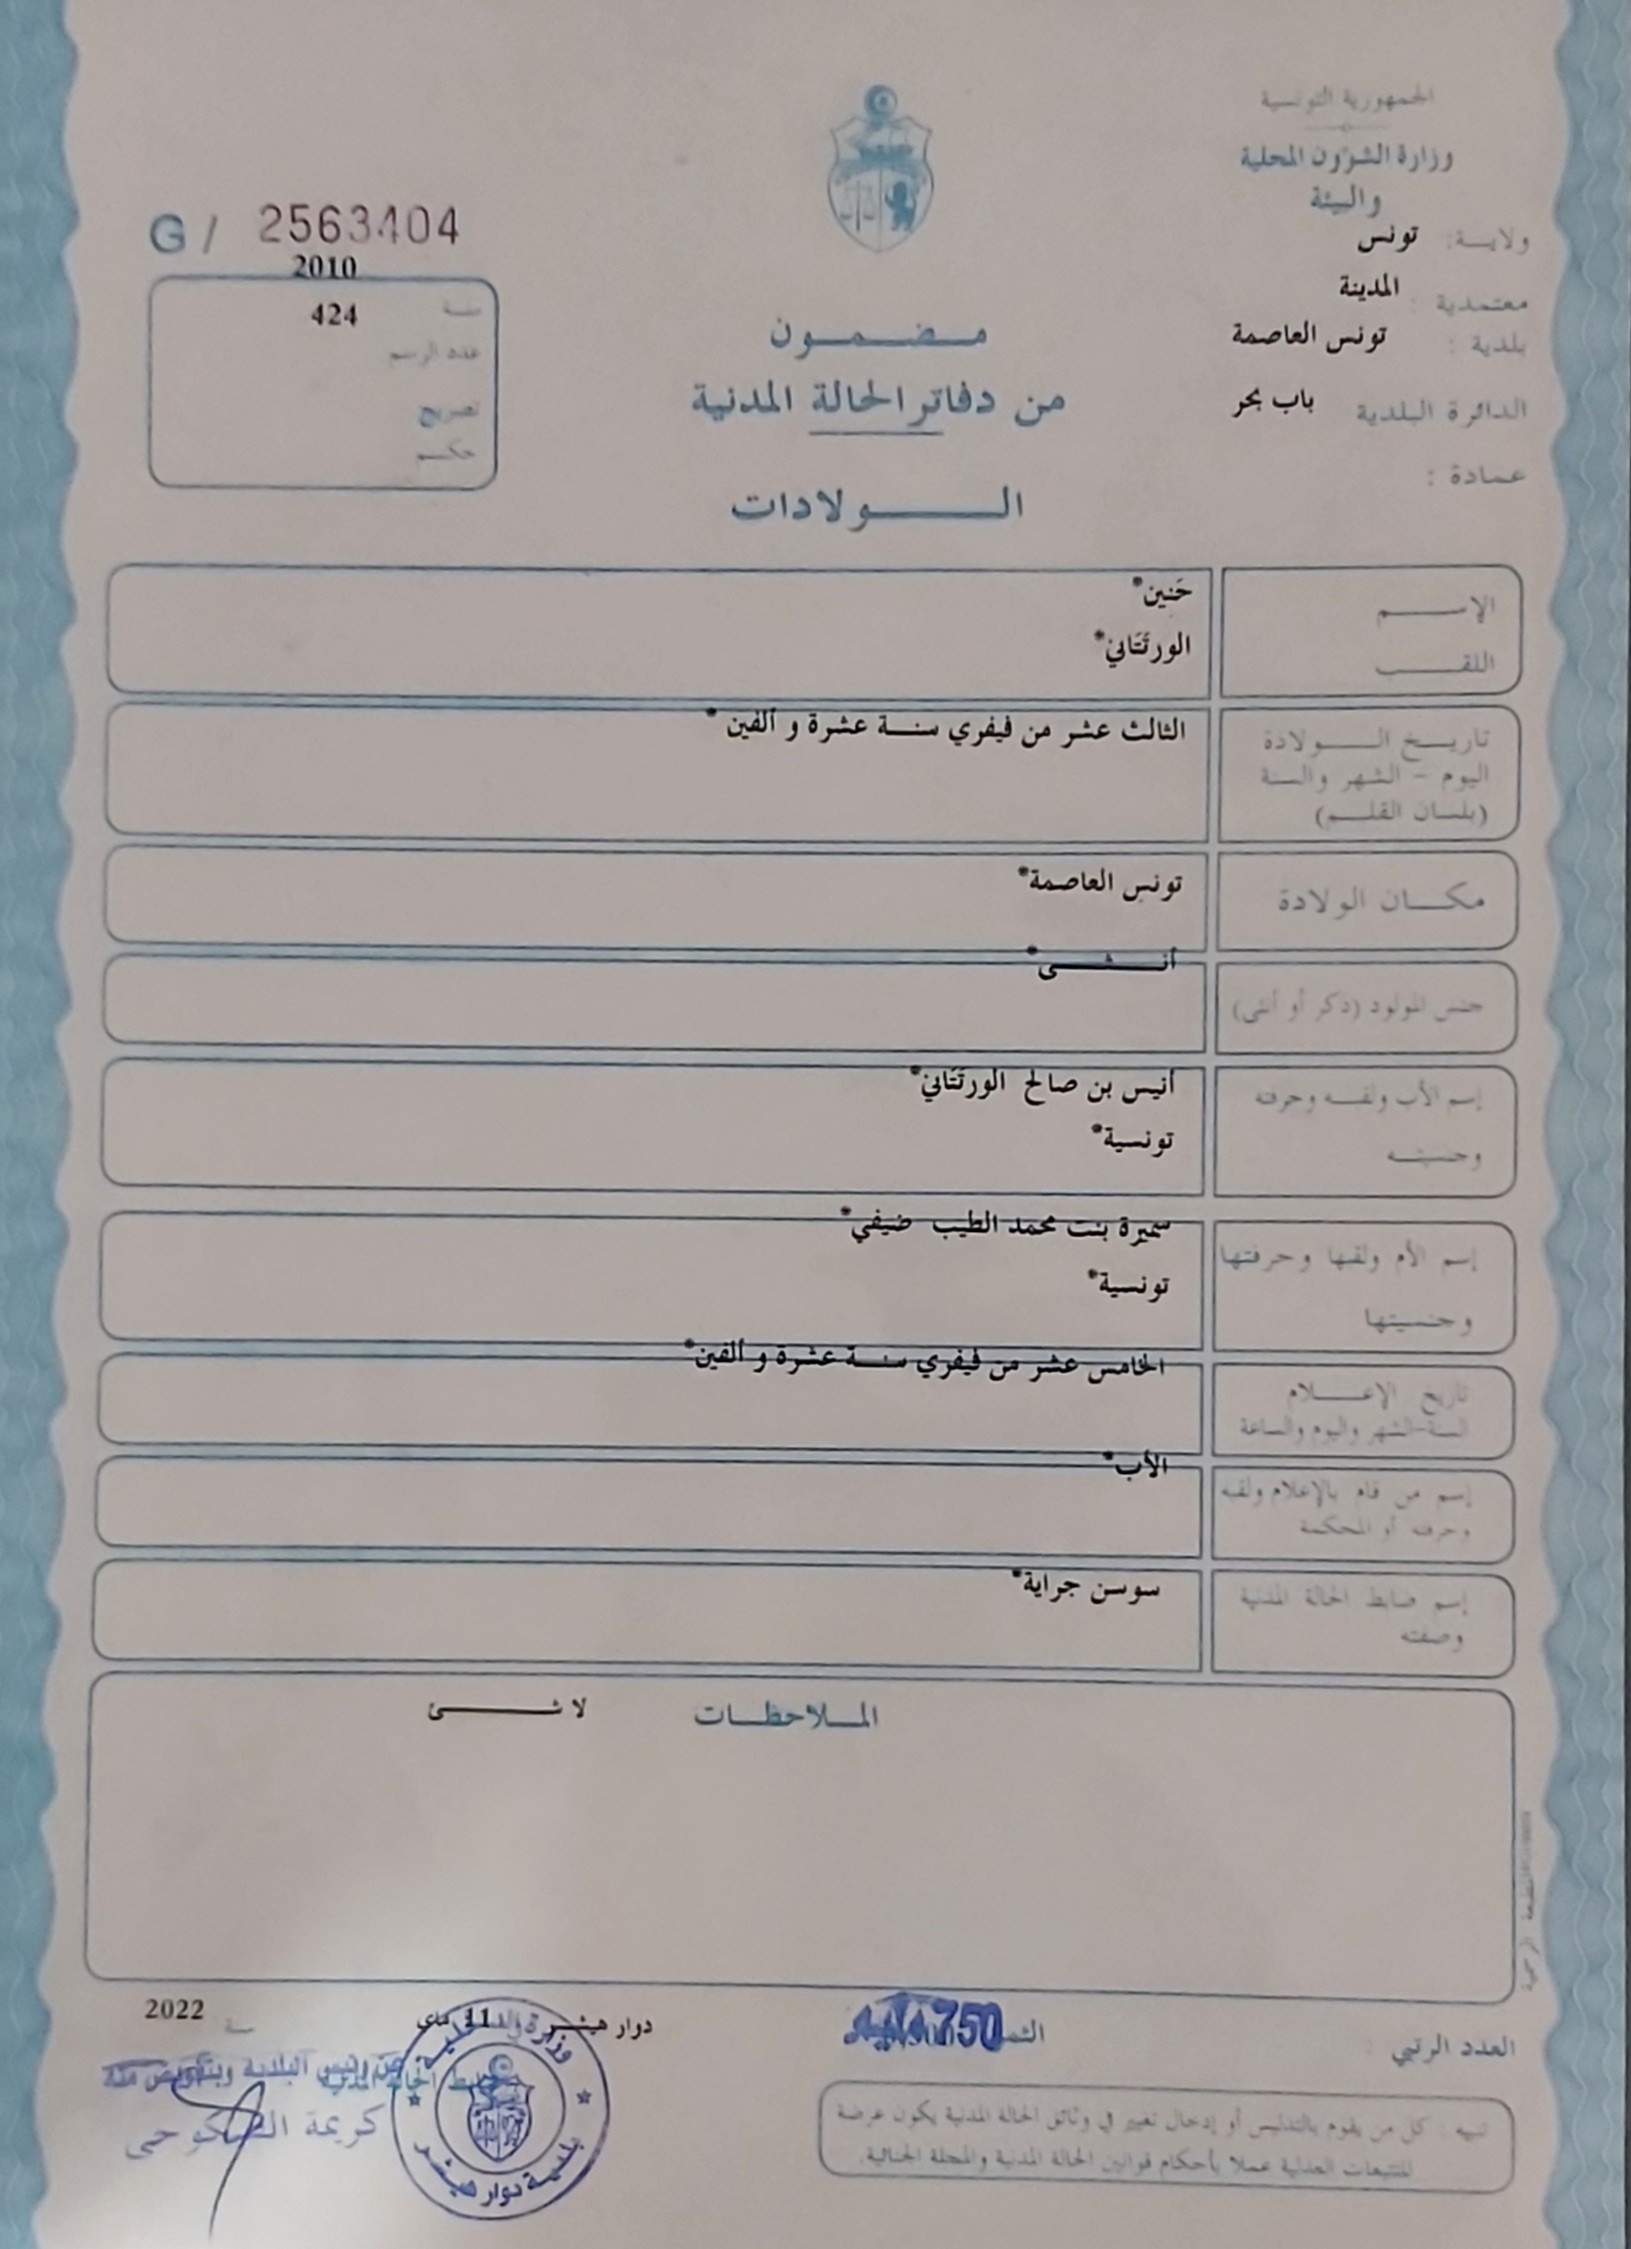 الجمهورية التونسية
وزارة الشؤون المحلية
والبيئة
ولايـــة: تونس
معتمدية : المدينة
بلدية : تونس العاصمة
الدائرة البلدية باب بحر
عمادة :
G / 2563404
2010
سنـــة 424
عدد الرسم
تصريح
حكــم
مــضــمــون
من دفاتر الحالة المدنية
الـــــولادات
الإســــم حَنِين*
اللقــــب الورتَتَاني*
تاريــخ الــــولادة الثالث عشر من فيفري سنـــة عشرة و ألفين *
اليوم - الشهر والسنة
(بلسان القلـــم)
مكـــان الولادة تونس العاصمة*
أنــــثــــى*
جنس المولود (ذكر أو أنثى)
إسم الأب ولقبــه وحرفته أنيس بن صالح الورتَتَاني*
وجنسيتــه تونسية*
إسم الأم ولقبها وحرفتها سميرة بنت محمد الطيب ضيفي*
وجنسيتها تونسية*
تاريخ الإعــــلام الخامس عشر من فيفري سنـــة عشرة و ألفين*
السنة-الشهر واليوم والساعة
الأب*
إسم من قام بالإعلام ولقبه
وحرفته أو المحكمة
إسم ضابط الحالة المدنية سوسن جراية*
وصفته
المــلاحظــات لا شــــئ
العدد الرتبي :
الثمن 750
دوار هيشـــر 11 ماي سنـــة 2022
عن رئيس البلدية وبتفويض منه
ضابط الحالة المدنية
كريمة
وزارة الداخلية
بلدية دوار هيشر
تنبيه : كل من يقوم بالتدليس أو إدخال تغيير في وثائق الحالة المدنية يكون عرضة
للتتبعات العدلية عملا بأحكام قوانين الحالة المدنية والمجلة الجنائية.